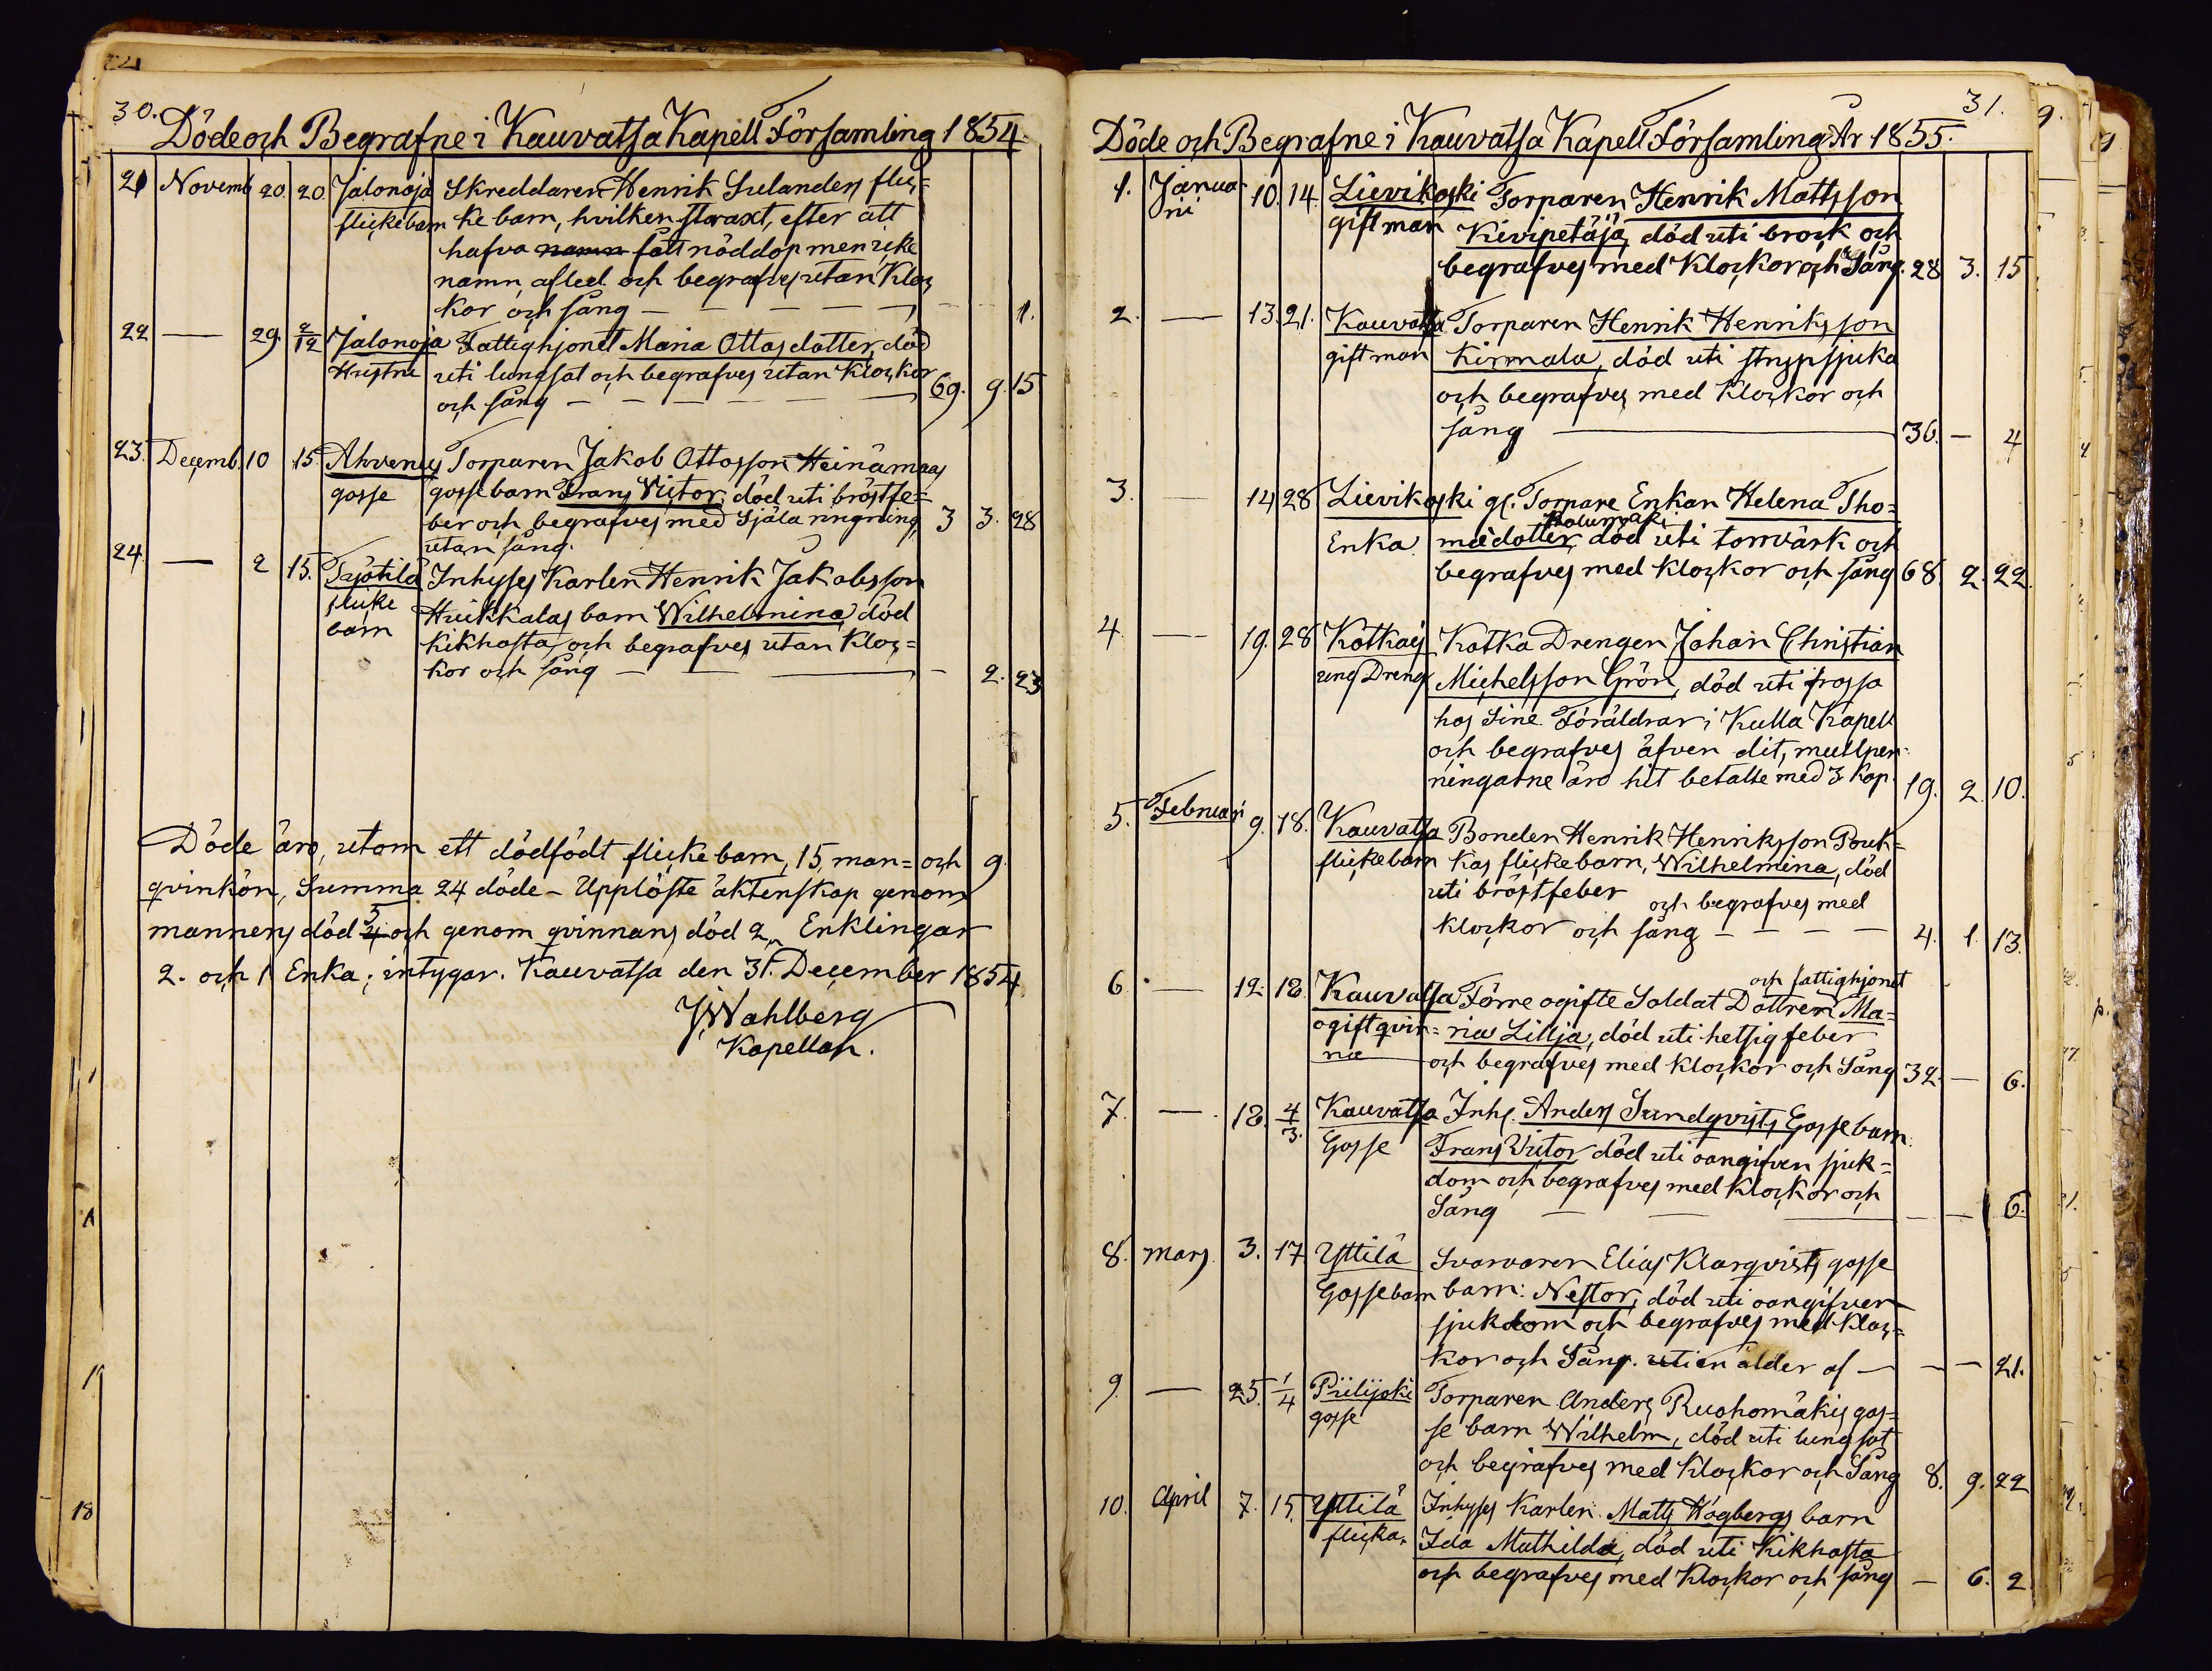 30.
Döde och Begrafne i Kauvatsa Kapell Församling 1854.
21 Novemb 20. 20. Jalonoja Skreddaren Henrik Sulanders flic=
flickebarn ke barn, hvilken straxt, efter att
hafva namn fått nöddop men icke
namn, afled och begrafves utan Kloc
kor och sång — — — — — 1.
22 — 29. 2/12 Jalonoja Fattighjonet Maria Ottos dotter, död
Hustru uti lungsot och begrafves utan Klockor
och sång — — — — — 69. 9. 15.
23. Decemb. 10 15. Ahvenus Torparen Jakob Ottosson Heinämaas
gosse gossebarn Frans Victor, död uti bröstfe=
ber och begrafves med Själa ringning, 3 3. 28
utan sång.
24. — 2 15. Inhyses Karlen Henrik Jakobsson
flicke Huikkalas barn Wilhelmina, död
barn Kikhosta, och begrafves utan Kloc=
kor och sång — — — — 2. 23
Döde äro, utom ett dödfödt flickebarn, 15, man= och 9.
qvinkön, Summa 24 döde – Upplöste äktenskap genom
mannens död 4 5 och genom qvinnans död 2„ Enklingar
2. och 1 Enka; intygar. Kauvatsa den 31. December 1854
J. Wahlberg
Kapellan.
31.
Döde och Begrafne i Kauvatsa Kapell Församling År 1855.
1. Januari 10. 14. Lievikoski Torparen Henrik Mattsson
gift man Kivipetäjä, död uti brock och
begrafves med Klockor och Sång. 28 3. 15
2. — 13. 21. Kauvatsa Torparen Henrik Henriksson
gift man Kirmala, död uti strypsjuka
och begrafves med Klockor och
sång — 36. — 4
3. — 14 28 Lievikoski gl. Torpare Enkan Helena Tho=
Enka mædotter död uti torrvärk och
begrafves med klockor och sång 68. 2. 22.
4. — 19. 28 Kotkais Kotka Drengen Johan Christian
ung Dreng Michelsson Grön, död uti frossa
hos Sine Föräldrar i Kulla Kapell
och begrafves äfven dit, mullpen=
ningarne äro hit betalte med 3 Kop. 19. 2. 10.
5. Februari 9. 18. Kauvatsa Bonden Henrik Henriksson Pouk=
flickebarn kas flickebarn, Wilhelmina, död
uti bröstfeber och begrafves med
klockor och sång — — — — 4. 1. 13.
och fattighjonet
6 — 12. 18. Kauvatsa Förre ogifte Soldat Dottren Ma=
ogift qvin= ria Lillja, död uti hetsig feber
na och begrafves med klockor och Sång 32. — 6.
7. — 18. 4/3. Kauvatsa Inh. Anders Sundqvists Gosse barn.
Gosse Frans Victor död uti oangifven sjuk=
dom och begrafves med Klockor och
Sång — — — — — 6.
8. Mars 3. 17. Yttilä Svarvaren Elias Klarqvists gosse
Gossebarn barn: Nestor, död uti oangifven
sjukdom och begrafves med Kloc=
kor och Sång. uti en ålder af — — — 21.
9. — 25. 1/4 Piilijoki Torparen Anders Ruohomäkis gos=
gosse se barn Wilhelm, död uti lungsot
och begrafves med Klockor och Sång 8. 9. 22
10. April 7. 15. Yttilä Inhyses Karlen Matts Högbergs barn
flicka. Ida Mathilda, död uti Kikhosta
och begrafves med Klockor och sång — 6. 2